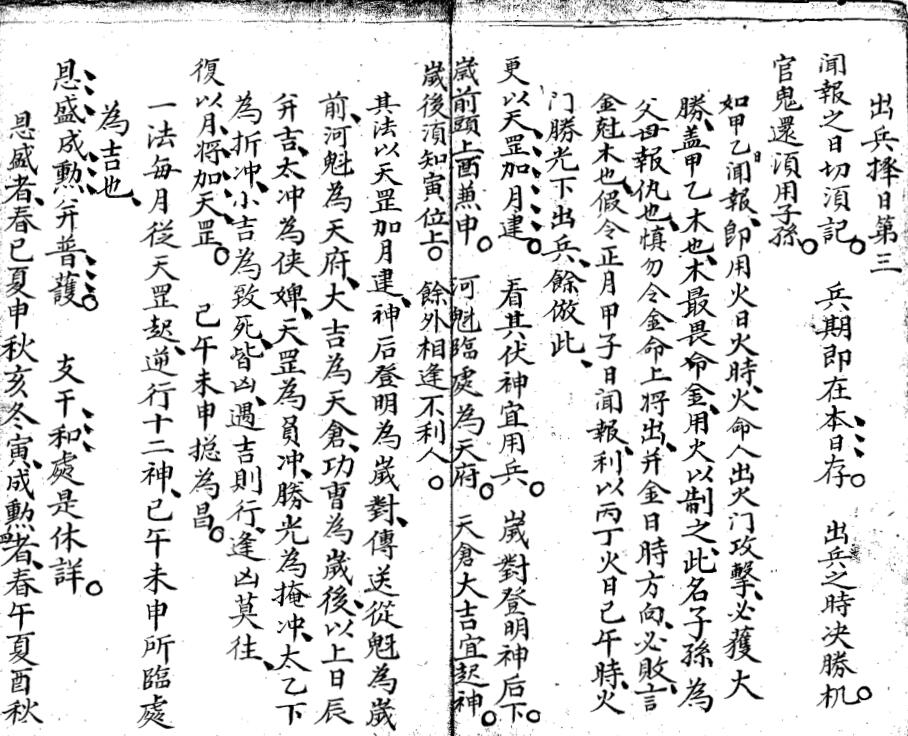 出兵擇日第三
聞報之日切須記。 兵期即在本日存。 出兵之時决勝机。
官鬼還須用子孫。
如甲乙日聞報、即用火日火時、火命人出火门攻擊、必獲大
勝、盖甲乙木也、木最畏命金、用火以制之、此名子孫為
父母報仇也、慎勿令金命上將出、并金日時方向、必敗、言
金尅木也、假令正月甲子日聞報、利以丙丁火日巳午時、火
门勝光下出兵、餘倣此、
更以天罡加月建。 看其伏神宜用兵。 歲對登明神后下。
歲前頭上酉兼申。 河魁臨處為天府。 天倉大吉宜起神。
歲後須知寅位上。 餘外相逢不利人。
其法以天罡加月建、神后登明為歲對、傳送從魁為歲
前、河魁為天府、大吉為天倉、功曹為歲後、以上日辰
并吉、太冲為侠婢、天罡為員冲、勝光為掩冲、太乙下
為折冲、小吉為致死、皆凶、遇吉則行、逢凶莫往、
復以月將加天罡。 巳午未申揔為昌。
一法每月従天罡起、逆行十二神、巳午未申所臨處
為吉也、
恩盛成勲并普護。 支干和處是休詳。
恩盛者、春巳夏申秋亥冬寅、成勲者、春午夏酉秋